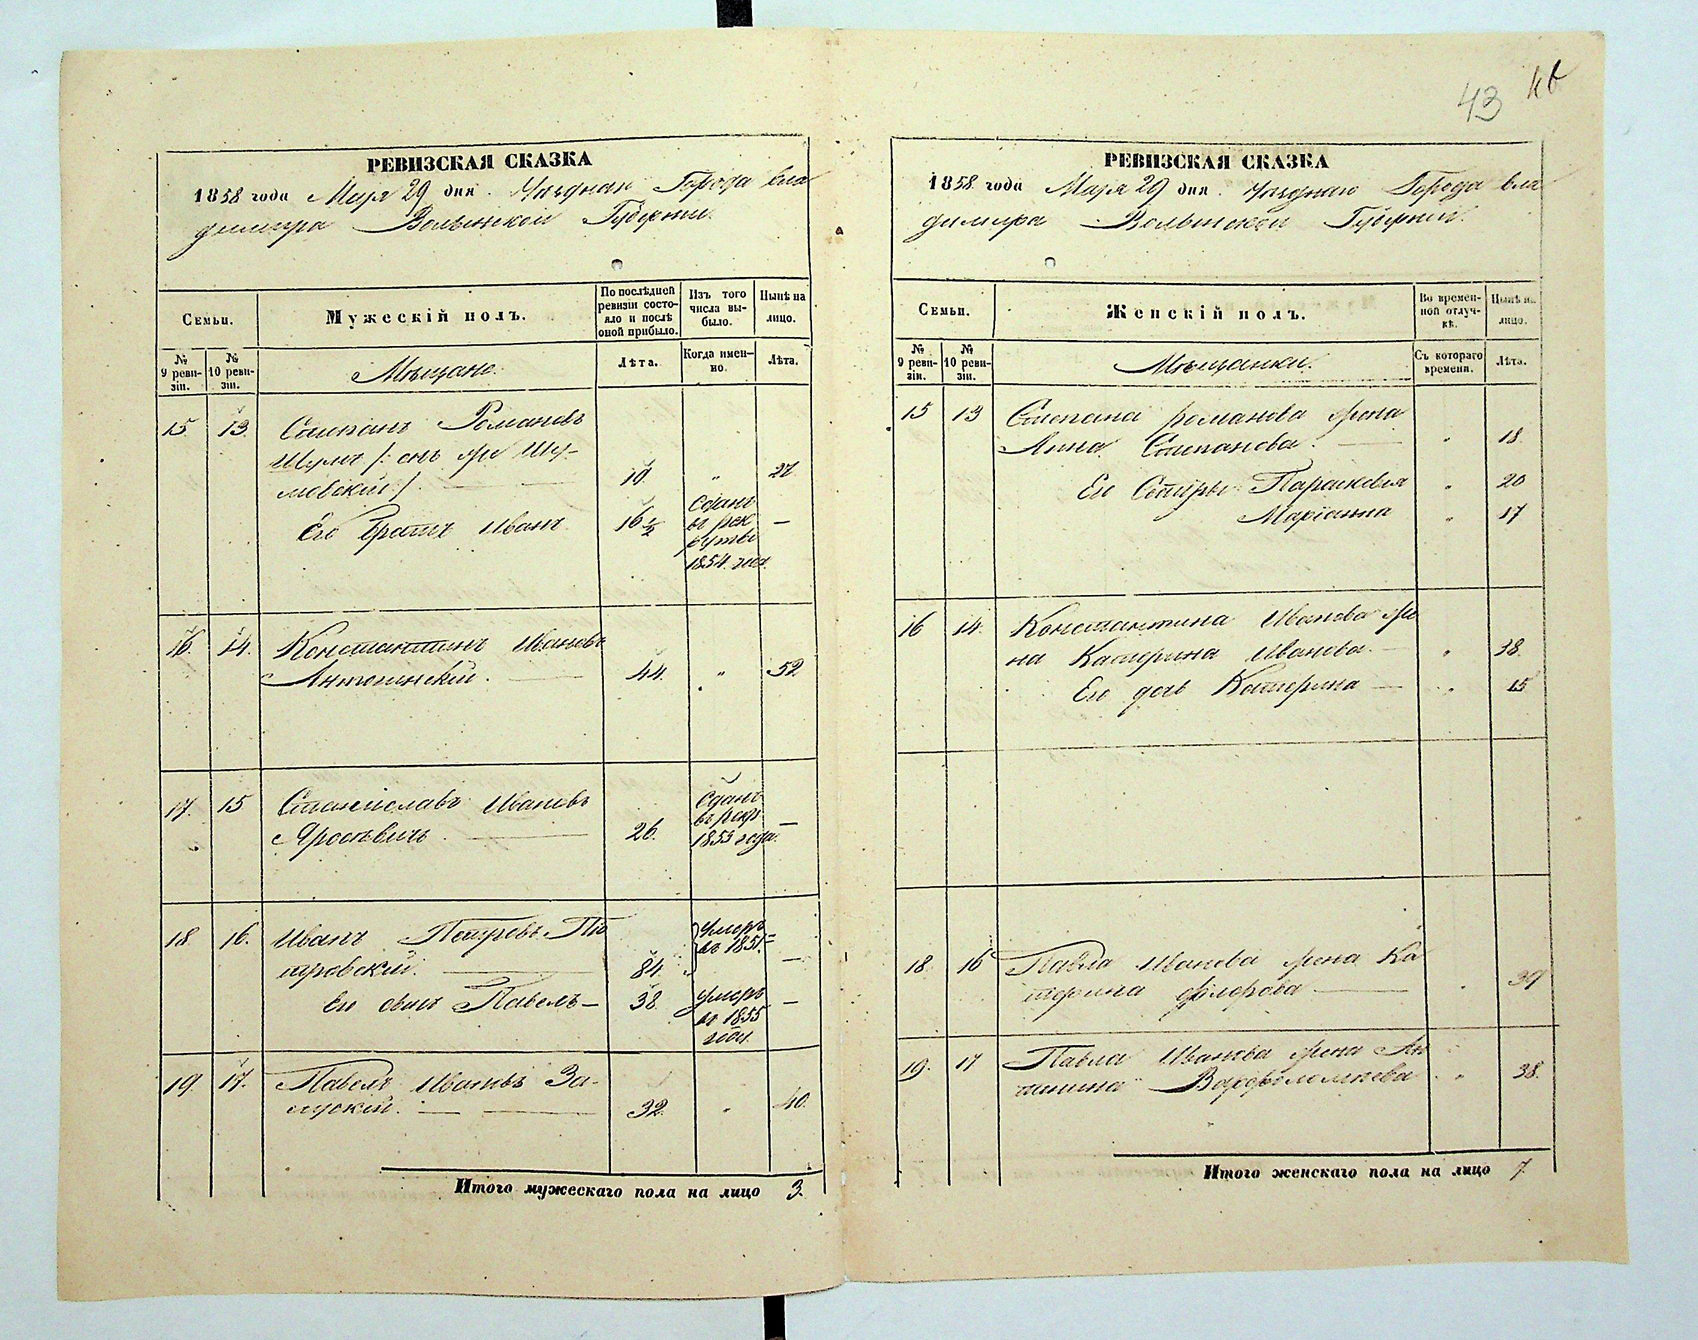 43
РЕВИЗСКАЯ СКАЗКА
1858 года Мая 29 дня. Уѣзднаго Города Вла
димира Волынской Губерніи.
Семьи.
Мужескій полъ.
По послѣдней ревизіи состо-
яло и послѣ
оной прибыло.
Изъ того
числа вы-
было.
Нынѣ на
лицо.
№
9 реви-
зіи.
№
10 реви-
зіи.
Мѣщане.
Лѣта.
Когда имен-
но.
Лѣта.
15 13 Степанъ Романовъ
Шумъ /: онъ же Шу-
мовскій :/ 19 " 27
Его Братъ Иванъ 16½ Сданъ въ рек руты 1854 года —
16. 14. Константинъ Ивановъ
Антогинскій. 44. " 52.
17. 15 Станиславъ Ивановъ
Яросѣвичъ 26. Сданъ въ рекр 1855 года. —
18 16. Иванъ Петровъ Пе
тровскій. 84. умеръ въ 1851. —
Его сынъ Павелъ — 38. умеръ въ 1855 года —
19. 17. Павелъ Ивановъ За-
луский. 32. " 40.
Итого мужескаго пола на лицо 3.
РЕВИЗСКАЯ СКАЗКА
1858 года Мая 29 дня. Уѣзднаго Города Вла
димира Волынской Губерніи.
Семьи.
Женскій полъ.
Во времен-
ной отлуч-
кѣ.
Нынѣ на
лицо.
№
9 реви-
зіи.
№
10 реви-
зіи.
Мѣщанки.
Съ котораго
времени.
Лѣта.
15 13 Степана Романова жена
Анна Степанова. " 18
Его Сестры Параскевія " 20
Маріанна " 17
16 14. Константина Иванова же
на Катерина Иванова. " 38.
Его дочь Катерина — " 15
18. 16 Павла Иванова жена Ка
терина Флорова " 39
19. 17 Павла Иванова жена Ан
тонина Варфоломѣева " 38.
Итого женскаго пола на лицо 7